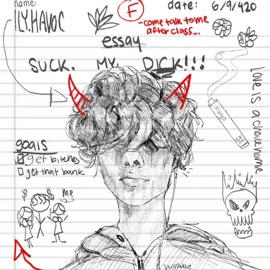 name:
ILYHAVOC
F
date: 6/9/420
-come talk to me
after class...
essay
SUCK. MY. DICK!!!
Love is a chore
goals
get bitches
get that bank
Me